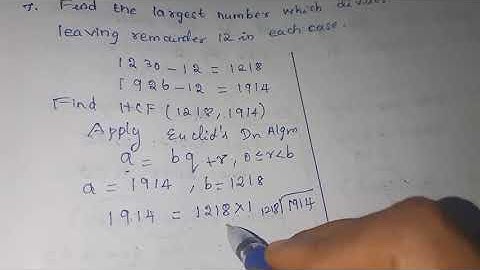 7. Find the largest number which
leaving remainder 12 in each case.
1230 - 12 = 1218
1926 - 12 = 1914
Find HCF (1218, 1914)
Apply Euclid's Dn Algm
a = bq + r, 0 ≤ r < b
a = 1914, b = 1218
1914 = 1218 × 1 1218 1914